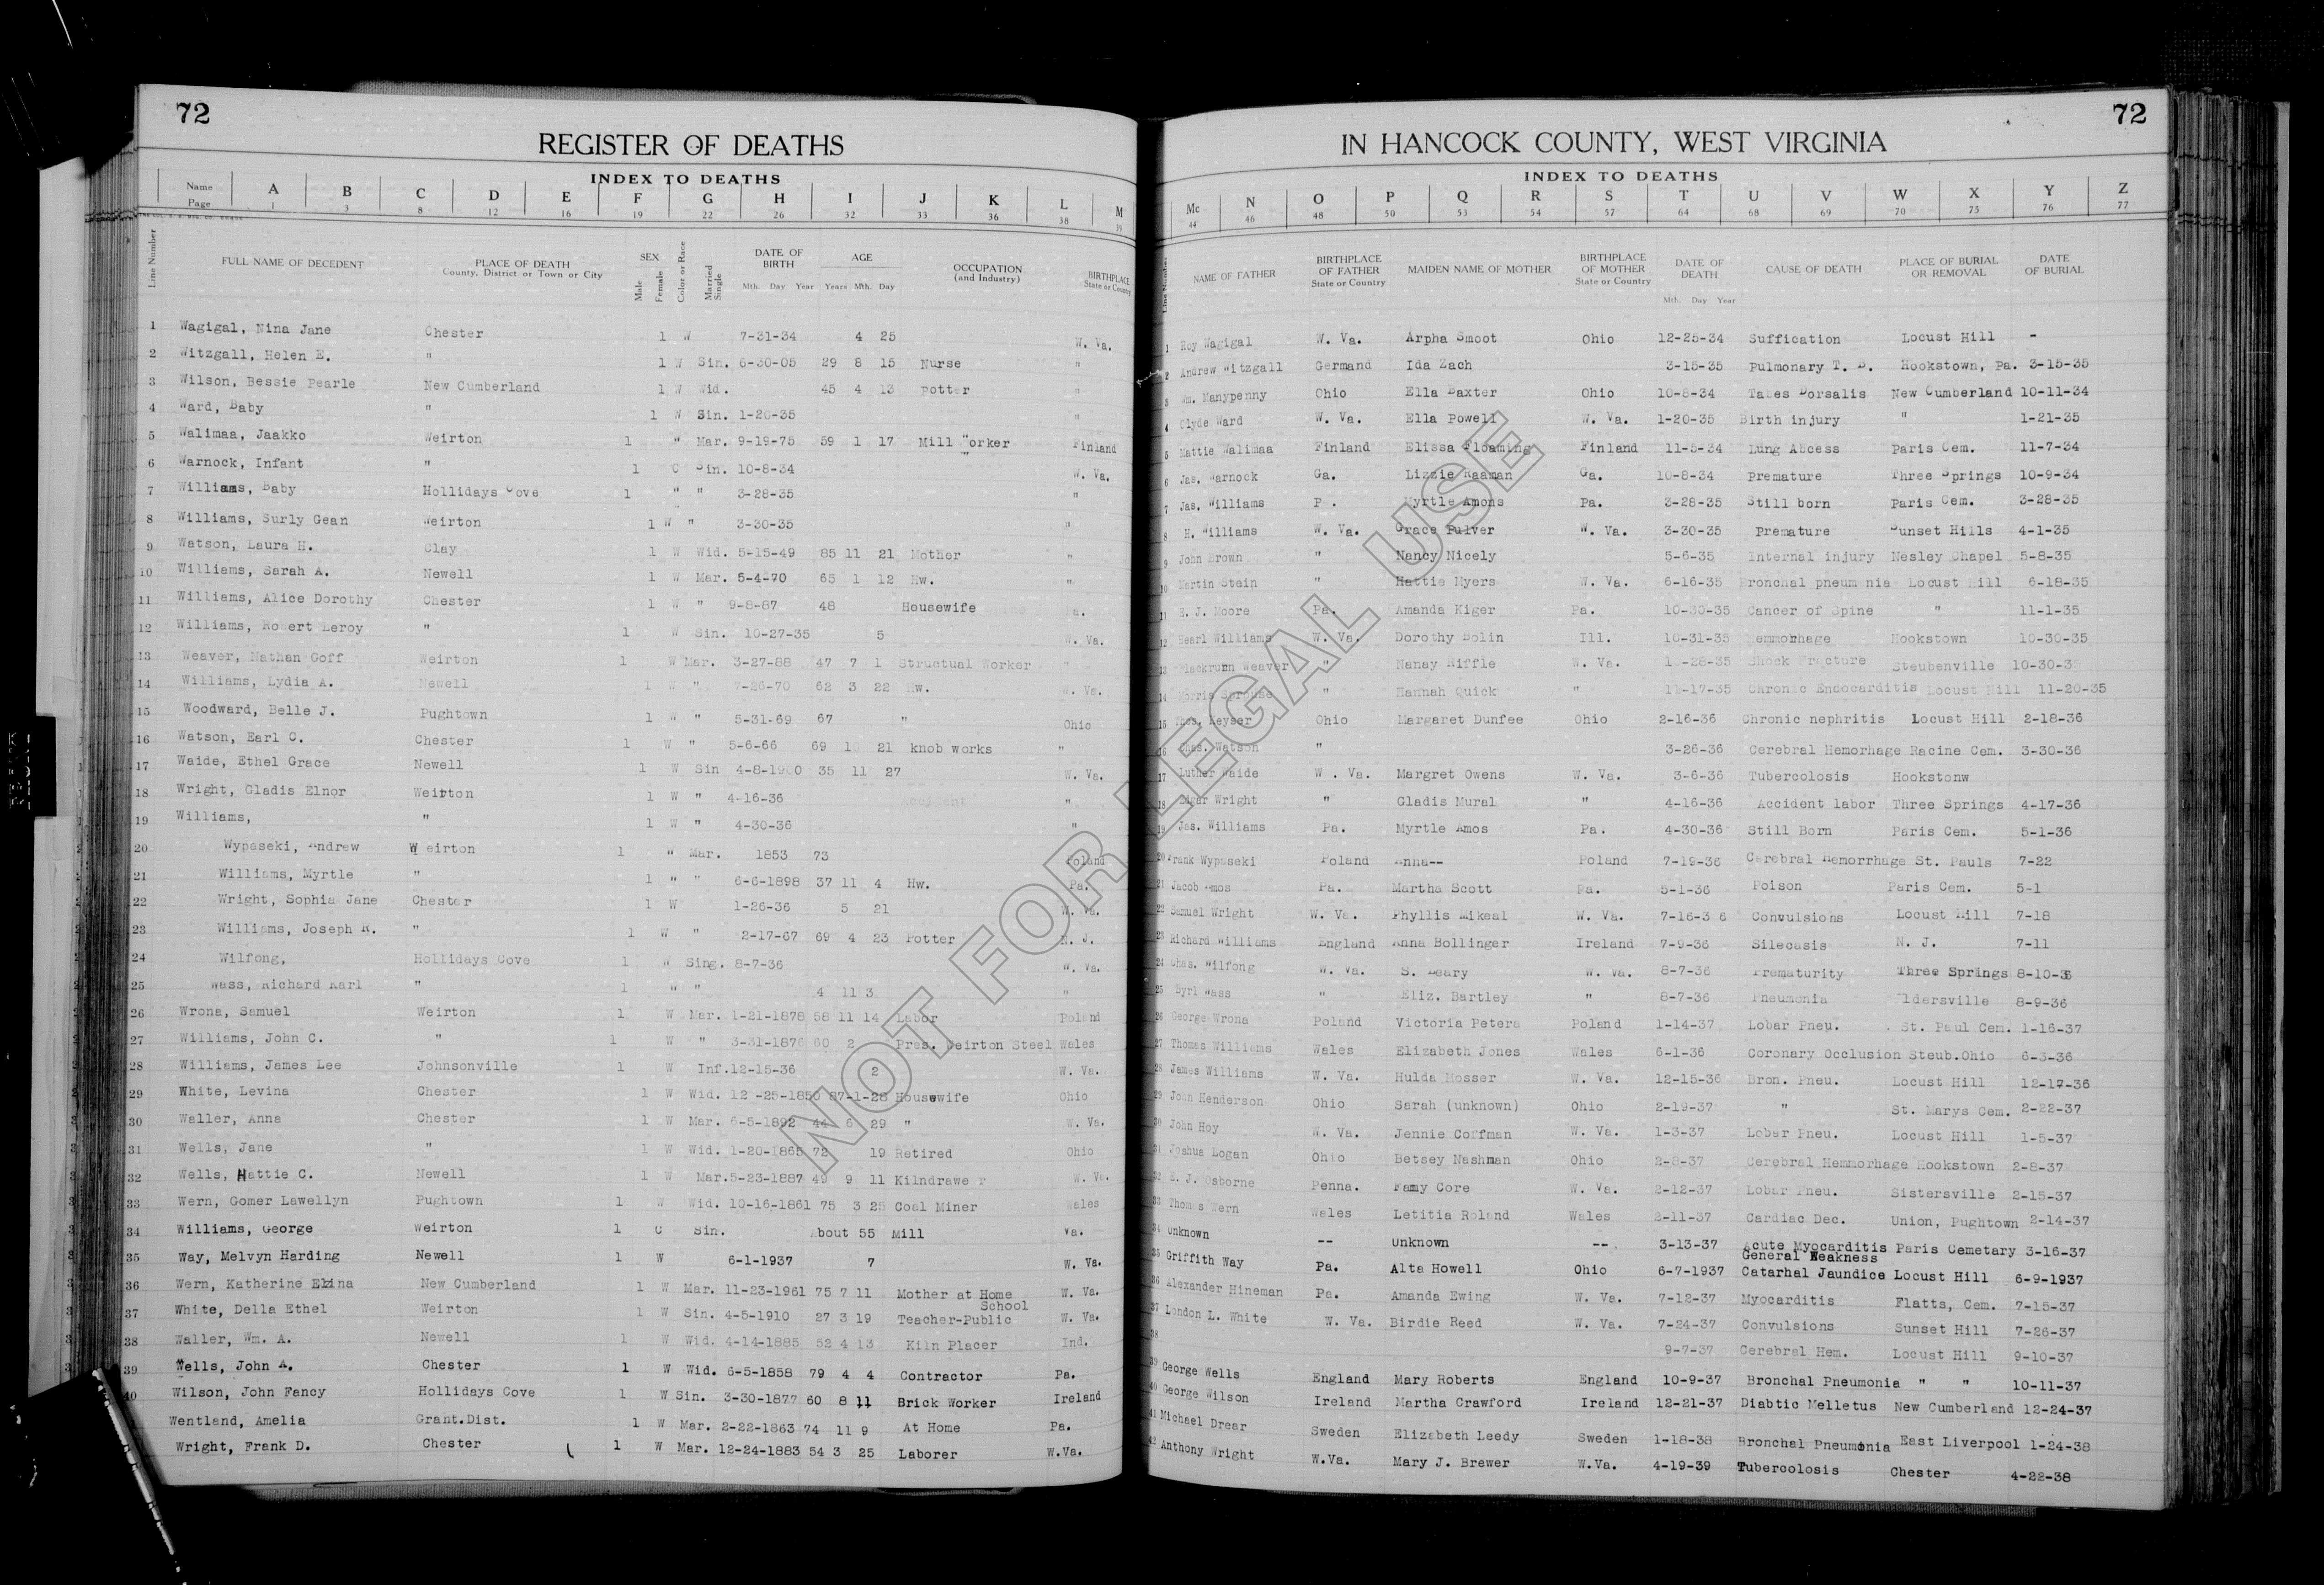 72
REGISTER OF DEATHS
INDEX TO DEATHS
Name A B C D E F G H I J K L M
Page 1 3 8 12 16 19 22 26 32 33 36 38 39
Line Number FULL NAME OF DECEDENT PLACE OF DEATH County, District or Town or City SEX Male Female Color or Race Married Single DATE OF BIRTH Mth. Day Year AGE Years Mth. Day OCCUPATION (and Industry) BIRTHPLACE State or Country
1 Wagigal, Nina Jane Chester 1 W 7-31-34 4 25 W. Va.
2 Witzgall, Helen E. " 1 W Sin. 6-30-05 29 8 15 Nurse "
3 Wilson, Bessie Pearle New Cumberland 1 W Wid. 45 4 13 potter "
4 Ward, Baby " 1 W Sin. 1-20-35 "
5 Walimaa, Jaakko Weirton 1 " Mar. 9-19-75 59 1 17 Mill Worker Finland
6 Warnock, Infant " 1 C Sin. 10-8-34 W. Va.
7 Williams, Baby Hollidays Cove 1 " " 3-28-35 "
8 Williams, Surly Gean Weirton 1 W " 3-30-35 "
9 Watson, Laura H. Clay 1 W Wid. 5-15-49 85 11 21 Mother "
10 Williams, Sarah A. Newell 1 W Mar. 5-4-70 65 1 12 Hw. "
11 Williams, Alice Dorothy Chester 1 W " 9-8-87 48 Housewife Pa.
12 Williams, Robert Leroy " 1 W Sin. 10-27-35 5 W. Va.
13 Weaver, Nathan Goff Weirton 1 W Mar. 3-27-88 47 7 1 Structual Worker "
14 Williams, Lydia A. Newell 1 W " 7-26-70 62 3 22 Hw. W. Va.
15 Woodward, Belle J. Pughtown 1 W " 5-31-69 67 " Ohio
16 Watson, Earl C. Chester 1 W " 5-6-66 69 10 21 knob works "
17 Waide, Ethel Grace Newell 1 W Sin 4-8-1900 35 11 27 W. Va.
18 Wright, Gladis Elnor Weirton 1 W " 4-16-36 Accident "
19 Williams, " 1 W " 4-30-36 "
20 Wypaseki, Andrew Weirton 1 " Mar. 1853 73 Poland
21 Williams, Myrtle " 1 " " 6-6-1898 37 11 4 Hw. Pa.
22 Wright, Sophia Jane Chester 1 W 1-26-36 5 21 W. Va.
23 Williams, Joseph R. " 1 W " 2-17-67 69 4 23 Potter N. J.
24 Wilfong, Hollidays Cove 1 W Sing. 8-7-36 W. Va.
25 Wass, Richard Karl " 1 " " 4 11 3 "
26 Wrona, Samuel Weirton 1 W Mar. 1-21-1878 58 11 14 Labor Poland
27 Williams, John C. " 1 W " 3-31-1876 60 2 Pres. Weirton Steel Wales
28 Williams, James Lee Johnsonville 1 W Inf. 12-15-36 2 W. Va.
29 White, Levina Chester 1 W Wid. 12 -25-1850 87-1-28 Housewife Ohio
30 Waller, Anna Chester 1 W Mar. 6-5-1892 44 6 29 " W. Va.
31 Wells, Jane " 1 W Wid. 1-20-1865 72 19 Retired Ohio
32 Wells, Hattie C. Newell 1 W Mar. 5-23-1887 49 9 11 Kilndrawer W. Va.
33 Wern, Gomer Lawellyn Pughtown 1 W Wid. 10-16-1861 75 3 25 Coal Miner Wales
34 Williams, George Weirton 1 C Sin. About 55 Mill Va.
35 Way, Melvyn Harding Newell 1 W 6-1-1937 7 W. Va.
36 Wern, Katherine Elina New Cumberland 1 W Mar. 11-23-1961 75 7 11 Mother at Home W. Va.
37 White, Della Ethel Weirton 1 W Sin. 4-5-1910 27 3 19 Teacher-Public School W. Va.
38 Waller, Wm. A. Newell 1 W Wid. 4-14-1885 52 4 13 Kiln Placer Ind.
39 Wells, John A. Chester 1 W Wid. 6-5-1858 79 4 4 Contractor Pa.
40 Wilson, John Fancy Hollidays Cove 1 W Sin. 3-30-1877 60 8 11 Brick Worker Ireland
Wentland, Amelia Grant.Dist. 1 W Mar. 2-22-1863 74 11 9 At Home Pa.
Wright, Frank D. Chester 1 W Mar. 12-24-1883 54 3 25 Laborer W.Va.
72
IN HANCOCK COUNTY, WEST VIRGINIA
INDEX TO DEATHS
Mc N O P Q R S T U V W X Y Z
44 46 48 50 53 54 57 64 68 69 70 75 76 77
Line Number NAME OF FATHER BIRTHPLACE OF FATHER State or Country MAIDEN NAME OF MOTHER BIRTHPLACE OF MOTHER State or Country DATE OF DEATH Mth. Day Year CAUSE OF DEATH PLACE OF BURIAL OR REMOVAL DATE OF BURIAL
1 Roy Wagigal W. Va. Arpha Smoot Ohio 12-25-34 Suffication Locust Hill -
2 Andrew Witzgall Germand Ida Zach 3-15-35 Pulmonary T. B. Hookstown, Pa. 3-15-35
3 Wm. Manypenny Ohio Ella Baxter Ohio 10-8-34 Tabes Dorsalis New Cumberland 10-11-34
4 Clyde Ward W. Va. Ella Powell W. Va. 1-20-35 Birth injury " 1-21-35
5 Mattie Walimaa Finland Elissa Floaming Finland 11-5-34 Lung Abcess Paris Cem. 11-7-34
6 Jas. Warnock Ga. Lizzie Raaman Ga. 10-8-34 Premature Three Springs 10-9-34
7 Jas. Williams P . Myrtle Amons Pa. 3-28-35 Still born Paris Cem. 3-28-35
8 H. Williams W. Va. Grace Pulver W. Va. 3-30-35 Premature Sunset Hills 4-1-35
9 John Brown " Nancy Nicely 5-6-35 Internal injury Nesley Chapel 5-8-35
10 Martin Stein " Hattie Myers W. Va. 6-16-35 Bronchal pneum nia Locust Hill 6-18-35
11 E. J. Moore Pa. Amanda Kiger Pa. 10-30-35 Cancer of Spine " 11-1-35
12 Bearl Williams W. Va. Dorothy Bolin Ill. 10-31-35 Hemmorhage Hookstown 10-30-35
13 Blackrurn Weaver " Nanay Riffle W. Va. 10-28-35 Shock Fracture Steubenville 10-30-35
14 Morris Sprouse " Hannah Quick " 11-17-35 Chronic Endocarditis Locust Hill 11-20-35
15 Thos. Keyser Ohio Margaret Dunfee Ohio 2-16-36 Chronic nephritis Locust Hill 2-18-36
16 Chas. Watson " 3-26-36 Cerebral Hemorhage Racine Cem. 3-30-36
17 Luther Waide W . Va. Margret Owens W. Va. 3-6-36 Tubercolosis Hookstonw
18 Edgar Wright " Gladis Mural " 4-16-36 Accident labor Three Springs 4-17-36
19 Jas. Williams Pa. Myrtle Amos Pa. 4-30-36 Still Born Paris Cem. 5-1-36
20 Frank Wypaseki Poland Anna-- Poland 7-19-36 Cerebral Hemorrhage St. Pauls 7-22
21 Jacob Amos Pa. Martha Scott Pa. 5-1-36 Poison Paris Cem. 5-1
22 Samuel Wright W. Va. Phyllis Mikeal W. Va. 7-16-3 6 Convulsions Locust Hill 7-18
23 Richard Williams England Anna Bollinger Ireland 7-9-36 Silecasis N. J. 7-11
24 Chas. Wilfong W. Va. S. Beary W. Va. 8-7-36 Prematurity Three Springs 8-10-36
25 Byrl Wass " Eliz. Bartley " 8-7-36 Pneumonia Eldersville 8-9-36
26 George Wrona Poland Victoria Petera Poland 1-14-37 Lobar Pneu. St. Paul Cem. 1-16-37
27 Thomas Williams Wales Elizabeth Jones Wales 6-1-36 Coronary Occlusion Steub.Ohio 6-3-36
28 James Williams W. Va. Hulda Mosser W. Va. 12-15-36 Bron. Pneu. Locust Hill 12-17-36
29 John Henderson Ohio Sarah (unknown) Ohio 2-19-37 " St. Marys Cem. 2-22-37
30 John Hoy W. Va. Jennie Coffman W. Va. 1-3-37 Lobar Pneu. Locust Hill 1-5-37
31 Joshua Logan Ohio Betsey Nashman Ohio 2-8-37 Cerebral Hemmorhage Hookstown 2-8-37
32 E. J. Osborne Penna. Famy Core W. Va. 2-12-37 Lobar Pneu. Sistersville 2-15-37
33 Thomas Wern Wales Letitia Roland Wales 2-11-37 Cardiac Dec. Union, Pughtown 2-14-37
34 Unknown -- Unknown -- 3-13-37 Acute Myocarditis Paris Cemetary 3-16-37
General Weakness
35 Griffith Way Pa. Alta Howell Ohio 6-7-1937 Catarhal Jaundice Locust Hill 6-9-1937
36 Alexander Hineman Pa. Amanda Ewing W. Va. 7-12-37 Myocarditis Flatts, Cem. 7-15-37
37 London L. White W. Va. Birdie Reed W. Va. 7-24-37 Convulsions Sunset Hill 7-26-37
38 9-7-37 Cerebral Hem. Locust Hill 9-10-37
39 George Wells England Mary Roberts England 10-9-37 Bronchal Pneumonia " " 10-11-37
40 George Wilson Ireland Martha Crawford Ireland 12-21-37 Diabtic Melletus New Cumberland 12-24-37
41 Michael Drear Sweden Elizabeth Leedy Sweden 1-18-38 Bronchal Pneumonia East Liverpool 1-24-38
42 Anthony Wright W.Va. Mary J. Brewer W.Va. 4-19-39 Tubercolosis Chester 4-22-38
NOT FOR LEGAL USE